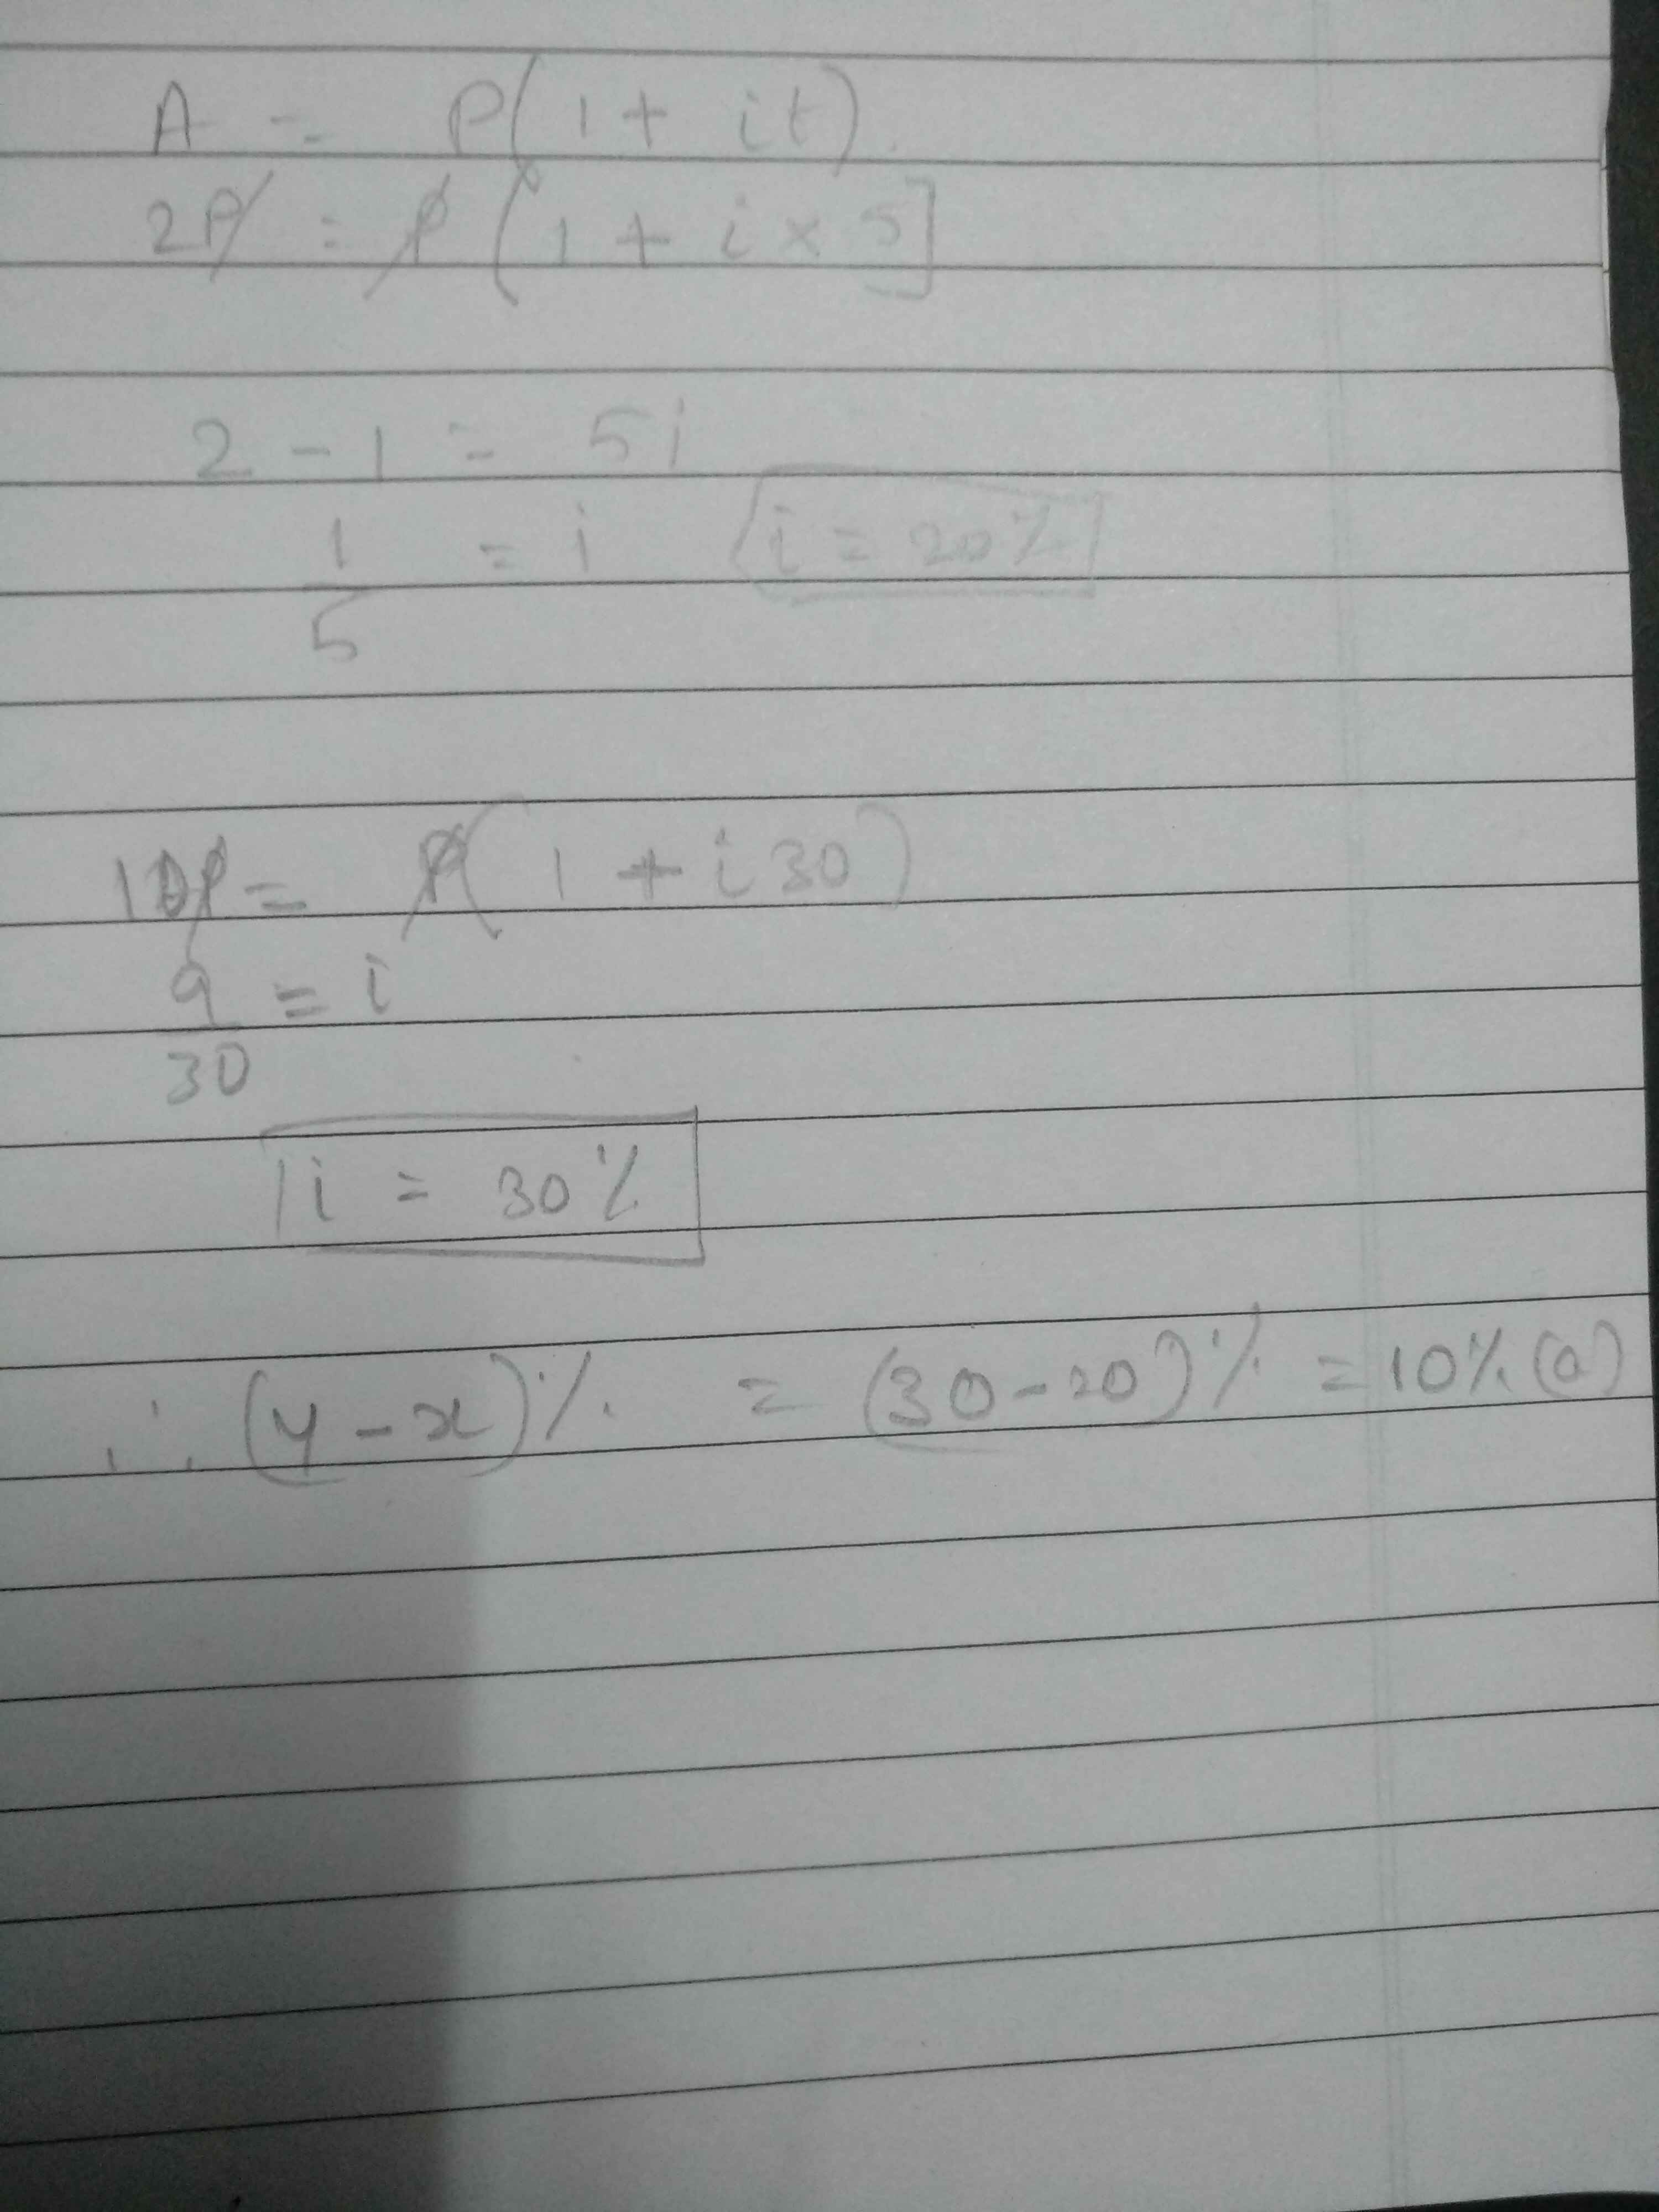 A = P(1 + it)
2P = P(1 + i × 5]
2 - 1 = 5i
1/5 = i i = 20%
10P = P(1 + i30)
9/30 = i
i = 30%
∴ (y - x)% = (30 - 20)% = 10% (a)